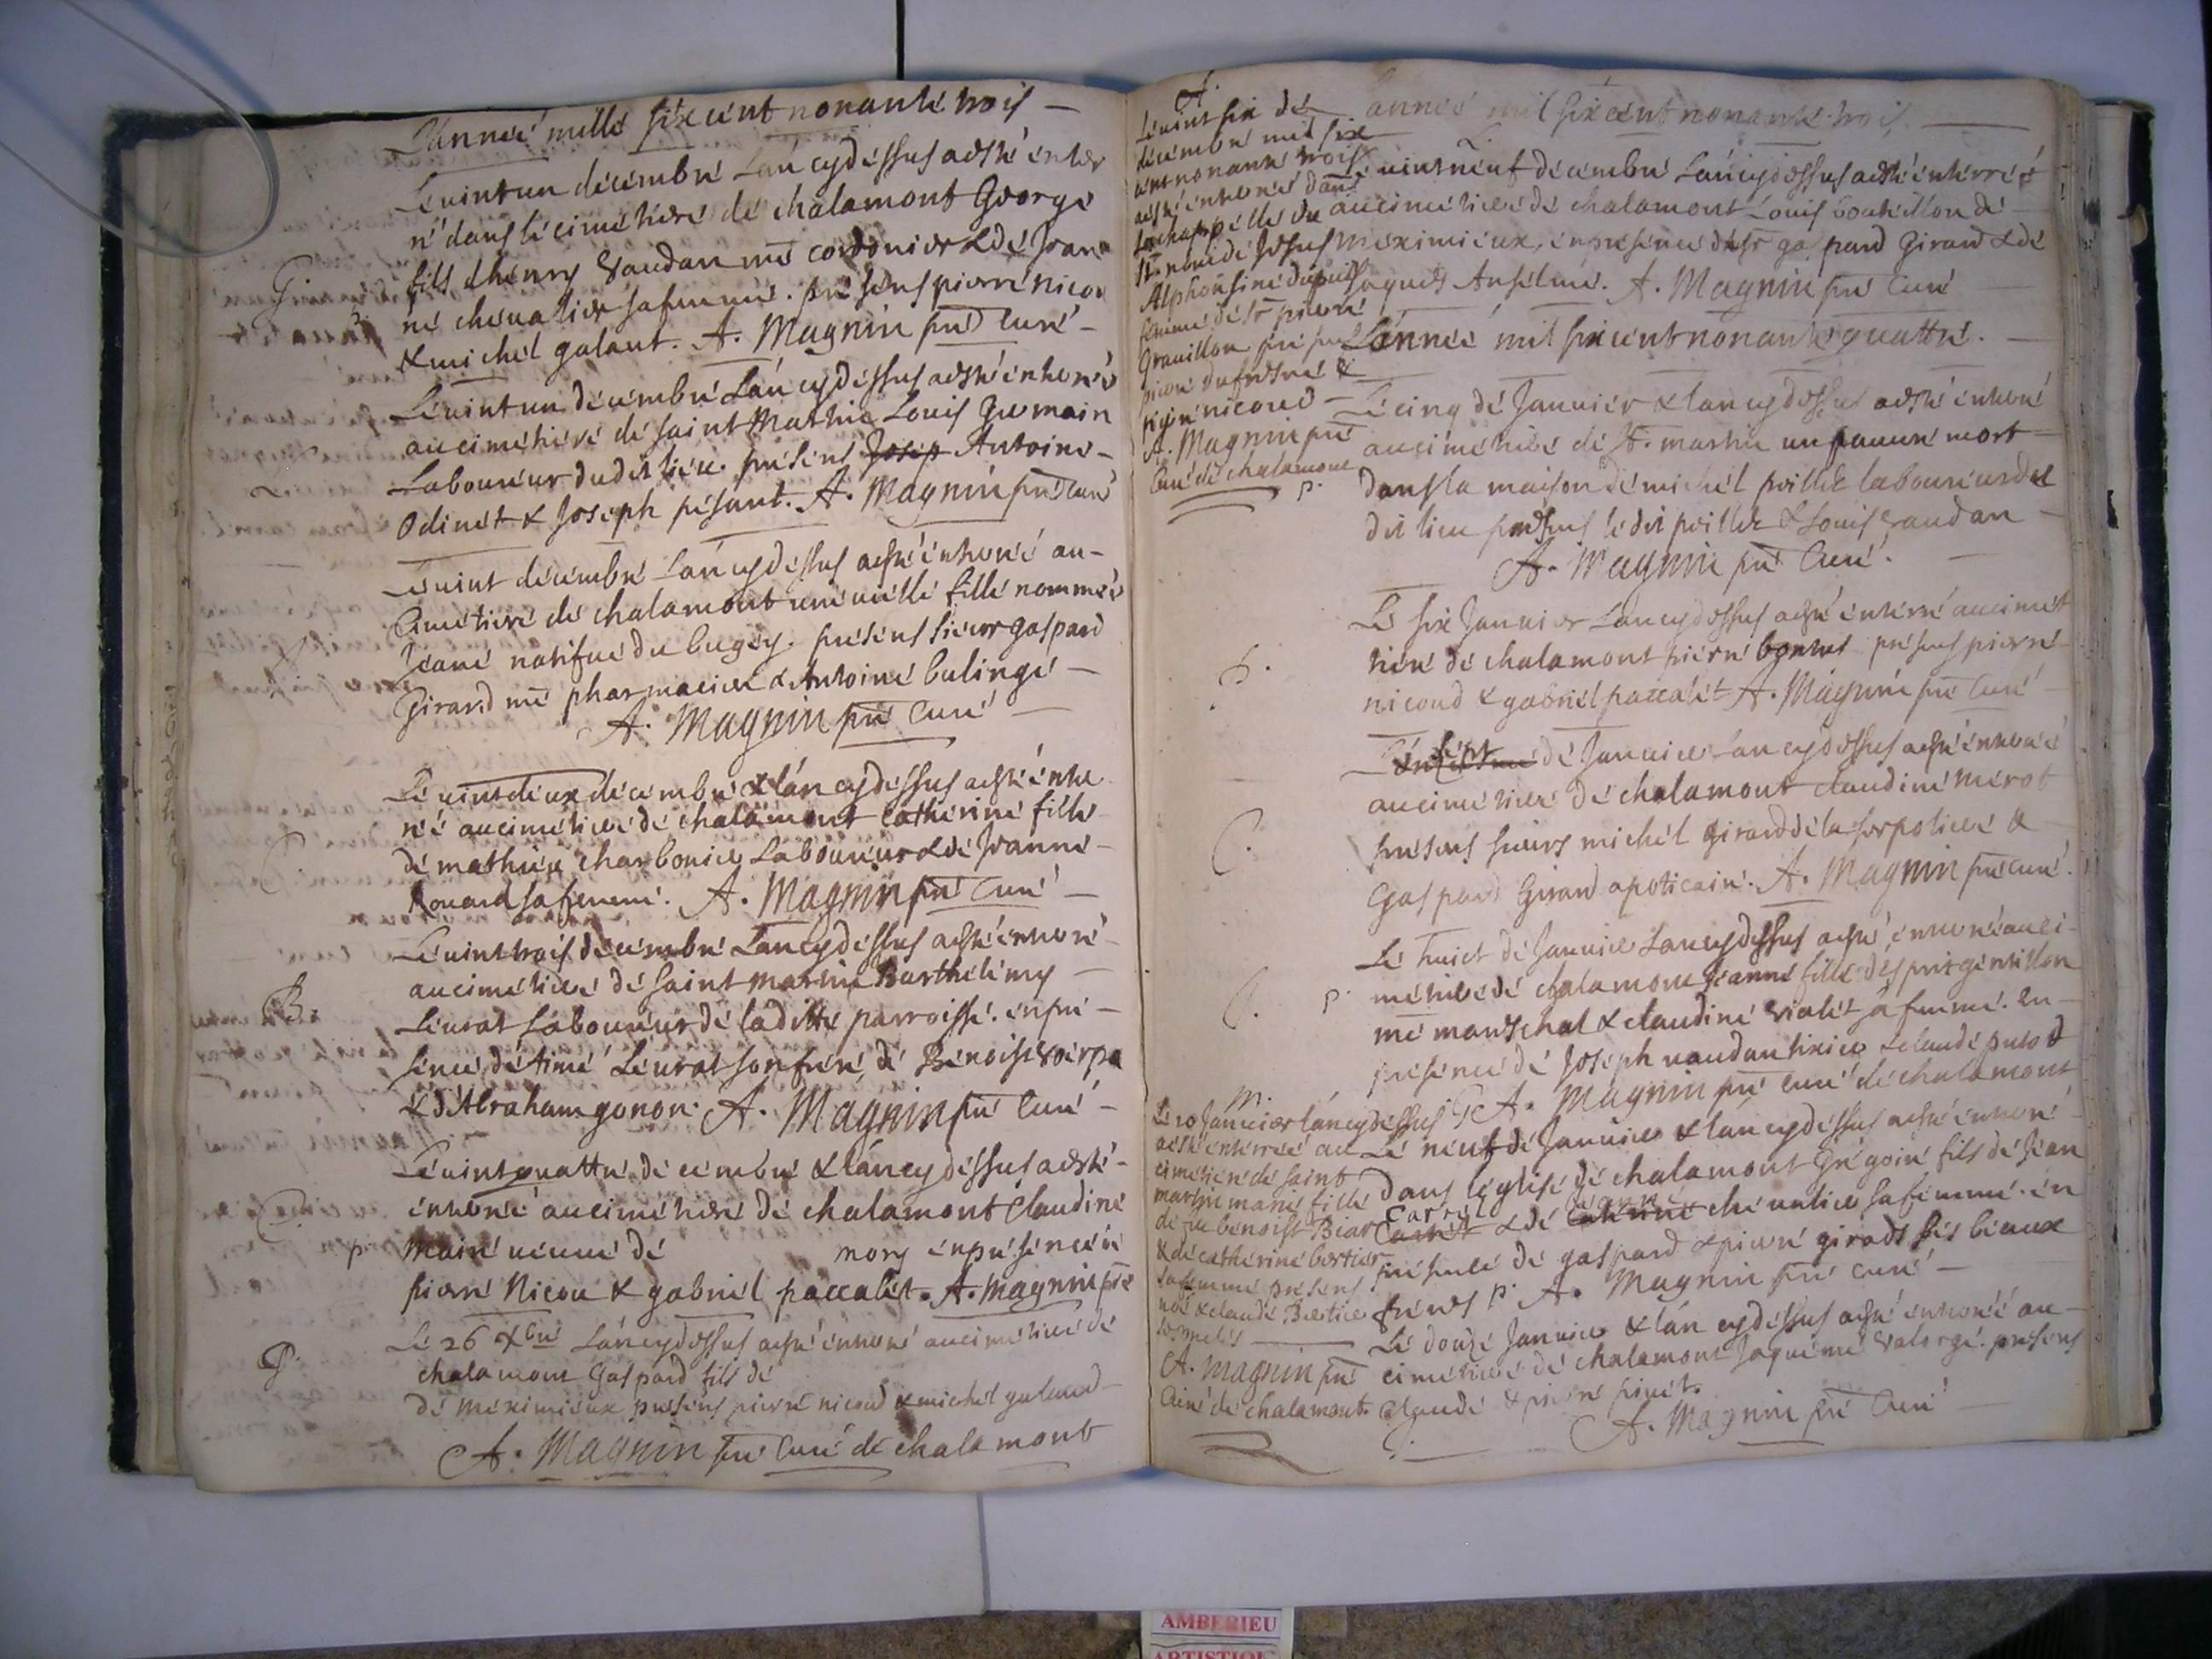 L'anneé mille six cent nonante trois —
Le vint un décembre Lan cy dessus a esté enter
ré dans lé cimétieré dé chalamont George
G
fils d'henry Vaudan mé cordonier & dé Joan
né chevalier sa femmé. présens pierré nicou
& michél galant. A. Magnin pré curé —
Lé vint un décembré L'an cy déssus a esté énterré
au cimétiéré dé saint Marthin Louis Germain
L
Laboureur dudit lieu. présens Josép Antoiné —
Odinét & Joséph pésant. A. Magnin pré curé
Lé vint décembré Lan cy déssus a esté énterré au —
Cimétieré dé chalamont uné viéllé fillé nomméé
J
Jeané natifué du bugéy. présens sieur gaspard
Girard mé pharmacien & Antoiné bulingé —
A. Magnin pré Curé —
Lé vint deux décembré & lán cy déssus a esté énté
ré au cimétieré dé chalamont cathériné fillé
C
dé mathieu charbonier Laboureur & dé Jeanné —
Rouard sa femmé. A. Magnin pré Curé —
Lé vint trois décembré L'an cy déssus a esté énterré —
au cimétieré dé saint martin Barthélémy —
B.
Léurat Laboureur dé laditté parroissé. én pré —
séncé d'étiné Léurat son fréré, dé Bénoist Voirpe
& d'Abraham gonon. A. Magnin pré Curé —
Lé vint quattré décembré & láncy déssus a esté —
énterré au cimétieré dé chalamont Claudiné
C.
p. Mairé véuué dé mory én préséncé dé
pierré Nicou & gabriél paccalét. A. Magnin pré
Lé 26 xbré Láncy déssus a esté énterré au cimétieré dé
G.
chalamont Gaspard fils dé
dé Méximieux présens pierré nicoud & michél galand —
A. Magnin pré Curé dé chalamont
A.
Lé vint six dé
décembré mil six
cent nonanté trois
a esté énterréé dans
la chappéllé du
St. nom dé Jésus
Alphonsiné dupuis
femmé dé sr pierré
Grauillon présens
pierré dufresné &
pierré nicoud —
A. Magnin pré
Curé dé chalamont
anneé mil six cent nonanté trois —
L.
vint néuf décémbré Láncy déssus a esté énterré
au cimétieré dé chalamont Louis boutéillon dé —
Méximieux, én préséncé du sr gaspard Girard & dé
Jaqués Ansélmé. A. Magnin pré Curé —
Lánneé mil six cent nonanté quattré. —
Lé cinq dé Januiér & lan cy déssus a esté énterré
au cimétieré dé St. martin un pauuré mort —
p. dans la maison dé michél poillét laboureur du
dit lieu présens lé dit poillét & Louis Vaudan —
A. Magnin pré Curé. —
Lé six Januiér Láncy déssus a esté énterré au cimét
tiéré dé chalamont pierré bonnet présens pierré
p.
nicoud & gabriél paccalét A. Magnin pré Curé —
Lé sépt dé Januiér Láncy déssus a esté énterréé
au cimétieré dé chalamont claudiné mérot
C.
présens sieurs michél girard dé la sérpolieré &
Gaspard Girard apoticairé. A. Magnin pré curé.
Lé huict dé Januiér Láncy déssus a esté énterréé au ci-
J. p. métieré dé chalamont Jeanné fillé d'ésprit gentillon
mé maréschal & claudiné violét sa femmé. én —
préséncé dé Joséph vaudan tixiér & claudé putod
G A. Magnin pré Curé dé chalamont
M.
Lé 10 Januiér láncy déssus
a esté énterréé au
cimétieré dé saint
martin marié fillé
dé feu bénoist Béar
& dé cathériné bértiér
sa femmé présens
noé & claudé Bértiér
A. Magnin pré
Curé dé chalamont.
Lé néuf dé Januiér & láncy déssus a esté énterré
dans l'églisé dé chalamont Grégoiré fils dé Jéan
Carrél Jeanné
Carrét & dé cathériné chéualiér sa femmé. én
préséncé dé gaspard & pierré girads sés béaux
fréres p. A. Magnin pré curé —
Lé douzé Januiér & lán cy déssus a esté énterréé au —
cimétieré dé chalamont Jaquémé Valorgé. présens
claudé & pierré pinét.
J. — A. Magnin pré Curé —
AMBERIEU
ARTISTIQUE